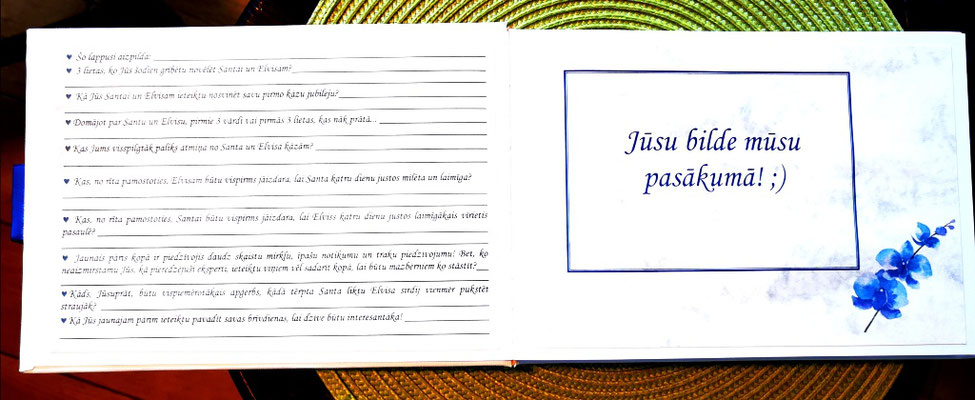 ♥ Šo lappusi aizpilda:
♥ 3 lietas, ko Jūs šodien gribētu novēlēt Santai un Elvisam?
♥ Kā Jūs Santai un Elvisam ieteiktu nosvinēt savu pirmo kāzu jubileju?
♥ Domājot par Santu un Elvisu, pirmie 3 vārdi vai pirmās 3 lietas, kas nāk prātā...
♥ Kas Jums visspilgtāk paliks atmiņā no Santa un Elvisa kāzām?
♥ Kas, no rīta pamostoties, Elvisam būtu vispirms jāizdara, lai Santa katru dienu justos mīlēta un laimīga?
♥ Kas, no rīta pamostoties, Santai būtu vispirms jāizdara, lai Elviss katru dienu justos laimīgākais vīrietis
pasaulē?
♥ Jaunais pāris kopā ir piedzīvojis daudz skaistu mirkļu, īpašu notikumu un traku piedzīvojumu! Bet, ko
neaizmirstamu Jūs, kā pieredzējuši eksperti, ieteiktu viņiem vēl sadarīt kopā, lai būtu mazbērniem ko stāstīt?
♥ Kāds, Jūsuprāt, būtu vispiemērotākais apģērbs, kādā tērpta Santa liktu Elvisa sirdij vienmēr pukstēt
straujāk?
♥ Kā Jūs jaunajam pārim ieteiktu pavadīt savas brīvdienas, lai dzīve būtu interesantāka!
Jūsu bilde mūsu
pasākumā! ;)